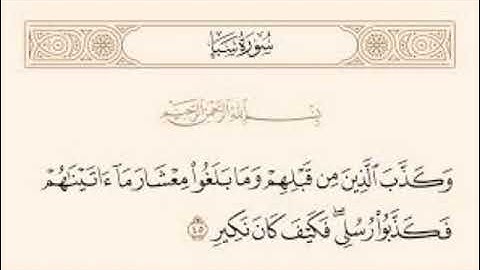 سُورَةُ سَبَإٍ
بِسْمِ ٱللَّهِ ٱلرَّحْمَٰنِ ٱلرَّحِيمِ
وَكَذَّبَ ٱلَّذِينَ مِن قَبْلِهِمْ وَمَا بَلَغُوا۟ مِعْشَارَ مَآ ءَاتَيْنَٰهُمْ
فَكَذَّبُوا۟ رُسُلِى ۖ فَكَيْفَ كَانَ نَكِيرِ ٤٥